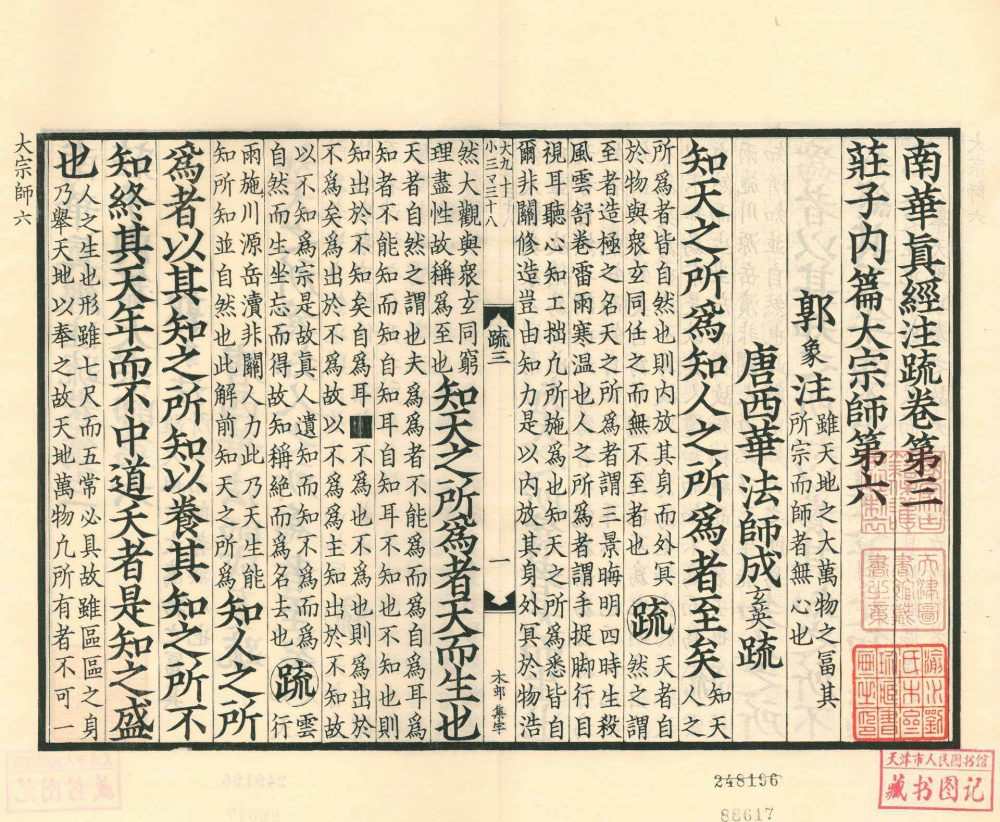 南華眞經注疏卷第三
莊子内篇大宗師第六
郭象注
雖天地之大萬物之冨其
所宗而師者無心也
唐西華法師成玄英疏
知天之所爲知人之所爲者至矣
知天
人之
所爲者皆自然也則内放其身而外冥
於物與衆玄同任之而無不至者也
疏
天者自
然之謂
至者造極之名天之所爲者謂三景晦明四時生殺
風雲舒卷雷雨寒温也人之所爲者謂手捉脚行目
視耳聽心知工拙凡所施爲也知天之所爲悉皆自
爾非關修造豈由知力是以内放其身外冥於物浩
疏三
一
然大觀與衆玄同窮
理盡性故稱爲至也
知天之所爲者天而生也
天者自然之謂也夫爲爲者不能爲而爲自爲耳爲
知知者不能知而知自知耳自知耳不知也不知也則
知出於不知矣自爲耳不爲也不爲也則爲出於
不爲矣爲出於不爲故以不爲爲主知出於不知故
以不知爲宗是故眞人遺知而知不爲而爲
自然而生坐忘而得故知稱絶而爲名去也
疏
雲行
雨施川源岳瀆非關人力此乃天生能
知所知並自然也此解前知天之所爲
知人之所
爲者以其知之所知以養其知之所不
知終其天年而不中道夭者是知之盛
也
人之生也形雖七尺而五常必具故雖區區之身
乃舉天地以奉之故天地萬物凡所有者不可一
大宗師六
天津市人民图书馆
藏书图记
248196
88617